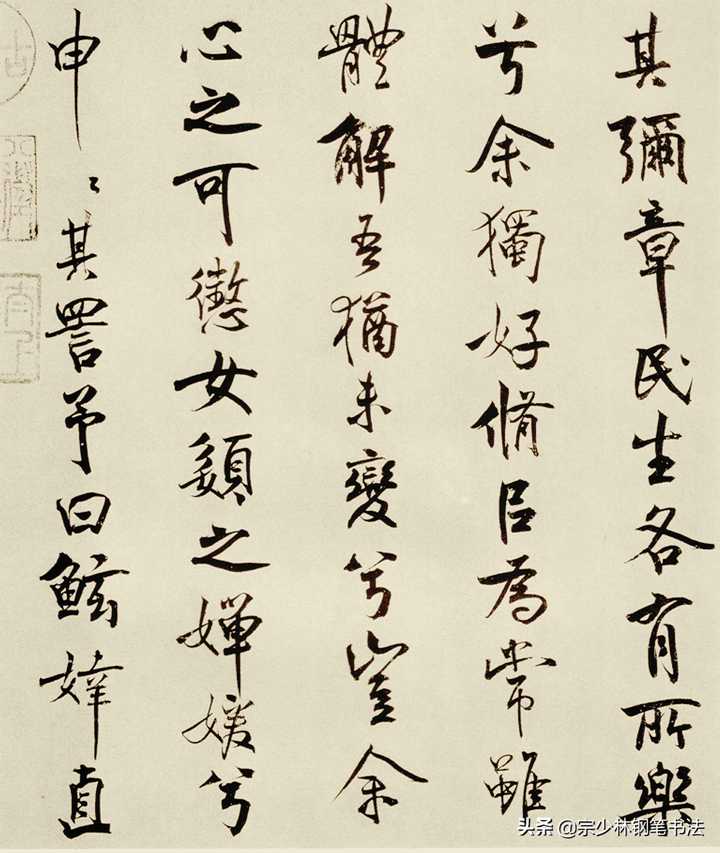 其彌章民生各有所樂
兮余獨好脩㠯為常雖
體解吾猶未變兮豈余
心之可懲女嬃之嬋媛兮
申〻其詈予曰鮌婞直
头条 @宗少林钢笔书法